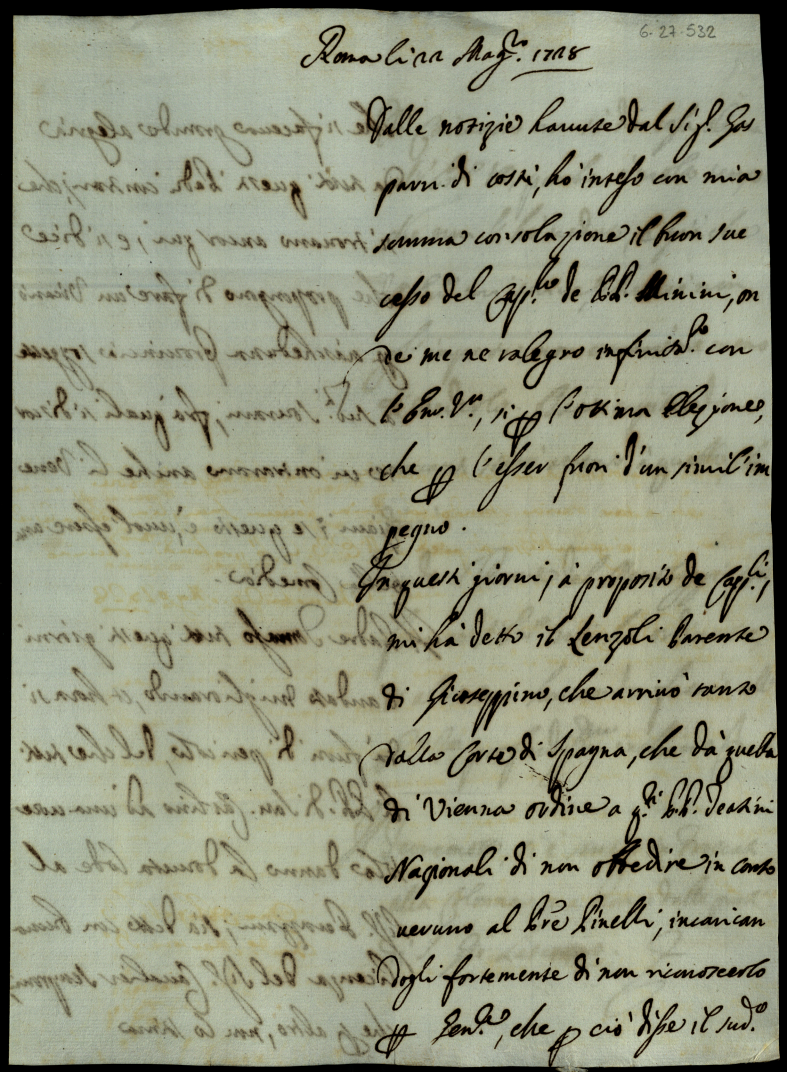 6-27-532
Roma li 22 Mag.º 1728
Dalle notizie hauute dal Sig.r Gas
parri di costì, hò inteso con mia
somma consolazione il buon suc
cesso del Cap.lo de PP. Minimi, on
de me ne ralegro infinitam.te con
l'Em. V.ra, sì ꝑ l'ottima Elezione,
che ꝑ l'esser fuori d'un simil'im
pegno.
In questi giorni, à proposito de Cap.li,
mi hà detto il Lenzoli Parente
di Giuseppino, che arrivò tanto
dalla Corte di Spagna, che dà quella
di Vienna ordine a q.ti PP. Teatini
Nazionali di non obbedire in conto
ueruno al Prē Pinelli, incarican
dogli fortemente di non riconoscerlo
ꝑ Gen.le, che ꝑ ciò disse il sud.º